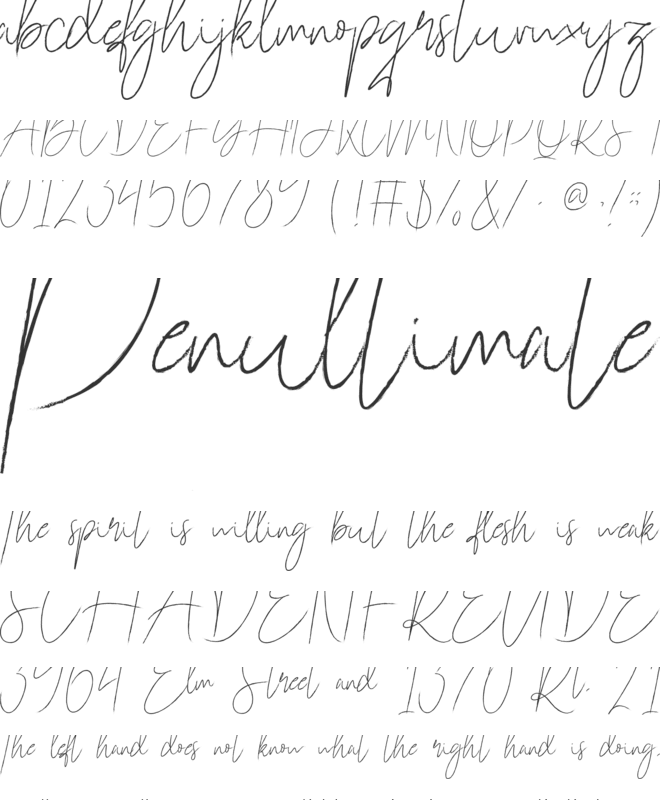 abcdefghijklmnopqrstuvwxyz
ABCDEFGHIJKLMNOPQRS
0123456789 (!#$%&/. @,!:;)
Penultimate
The spirit is willing but the flesh is weak
SCHADENFREUDE
3964 Elm Street and 1370 Rt. 21
The left hand does not know what the right hand is doing.